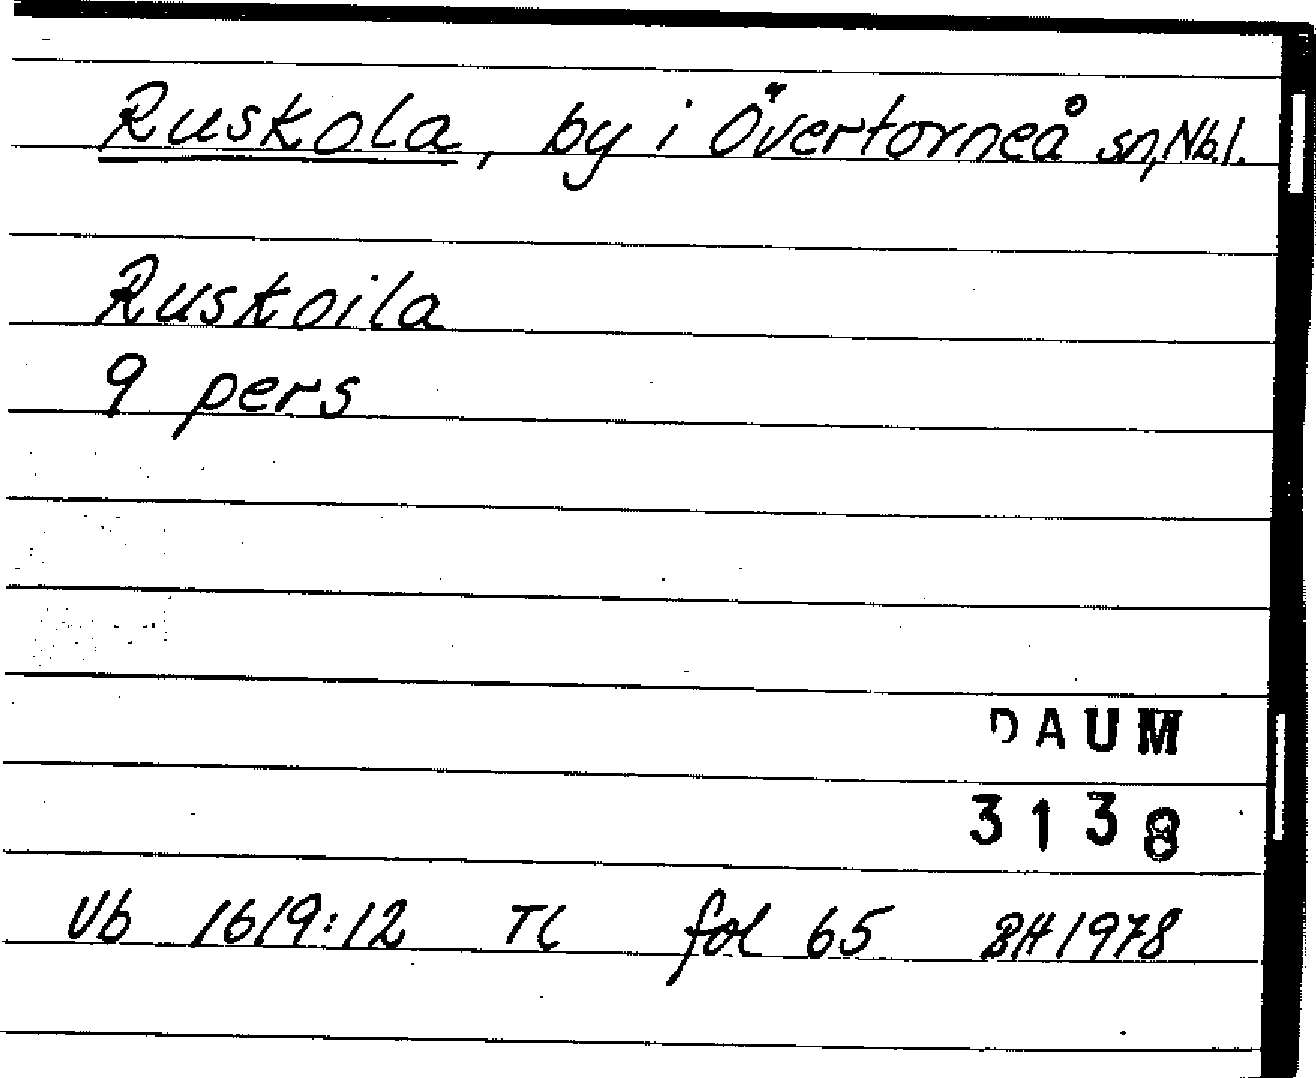 Ruskola, by i Övertorneå sn, Nb.l.
Ruskoila
9 pers
DAUM
3138
Vb 1619:12 TL fol 65 BH 1978